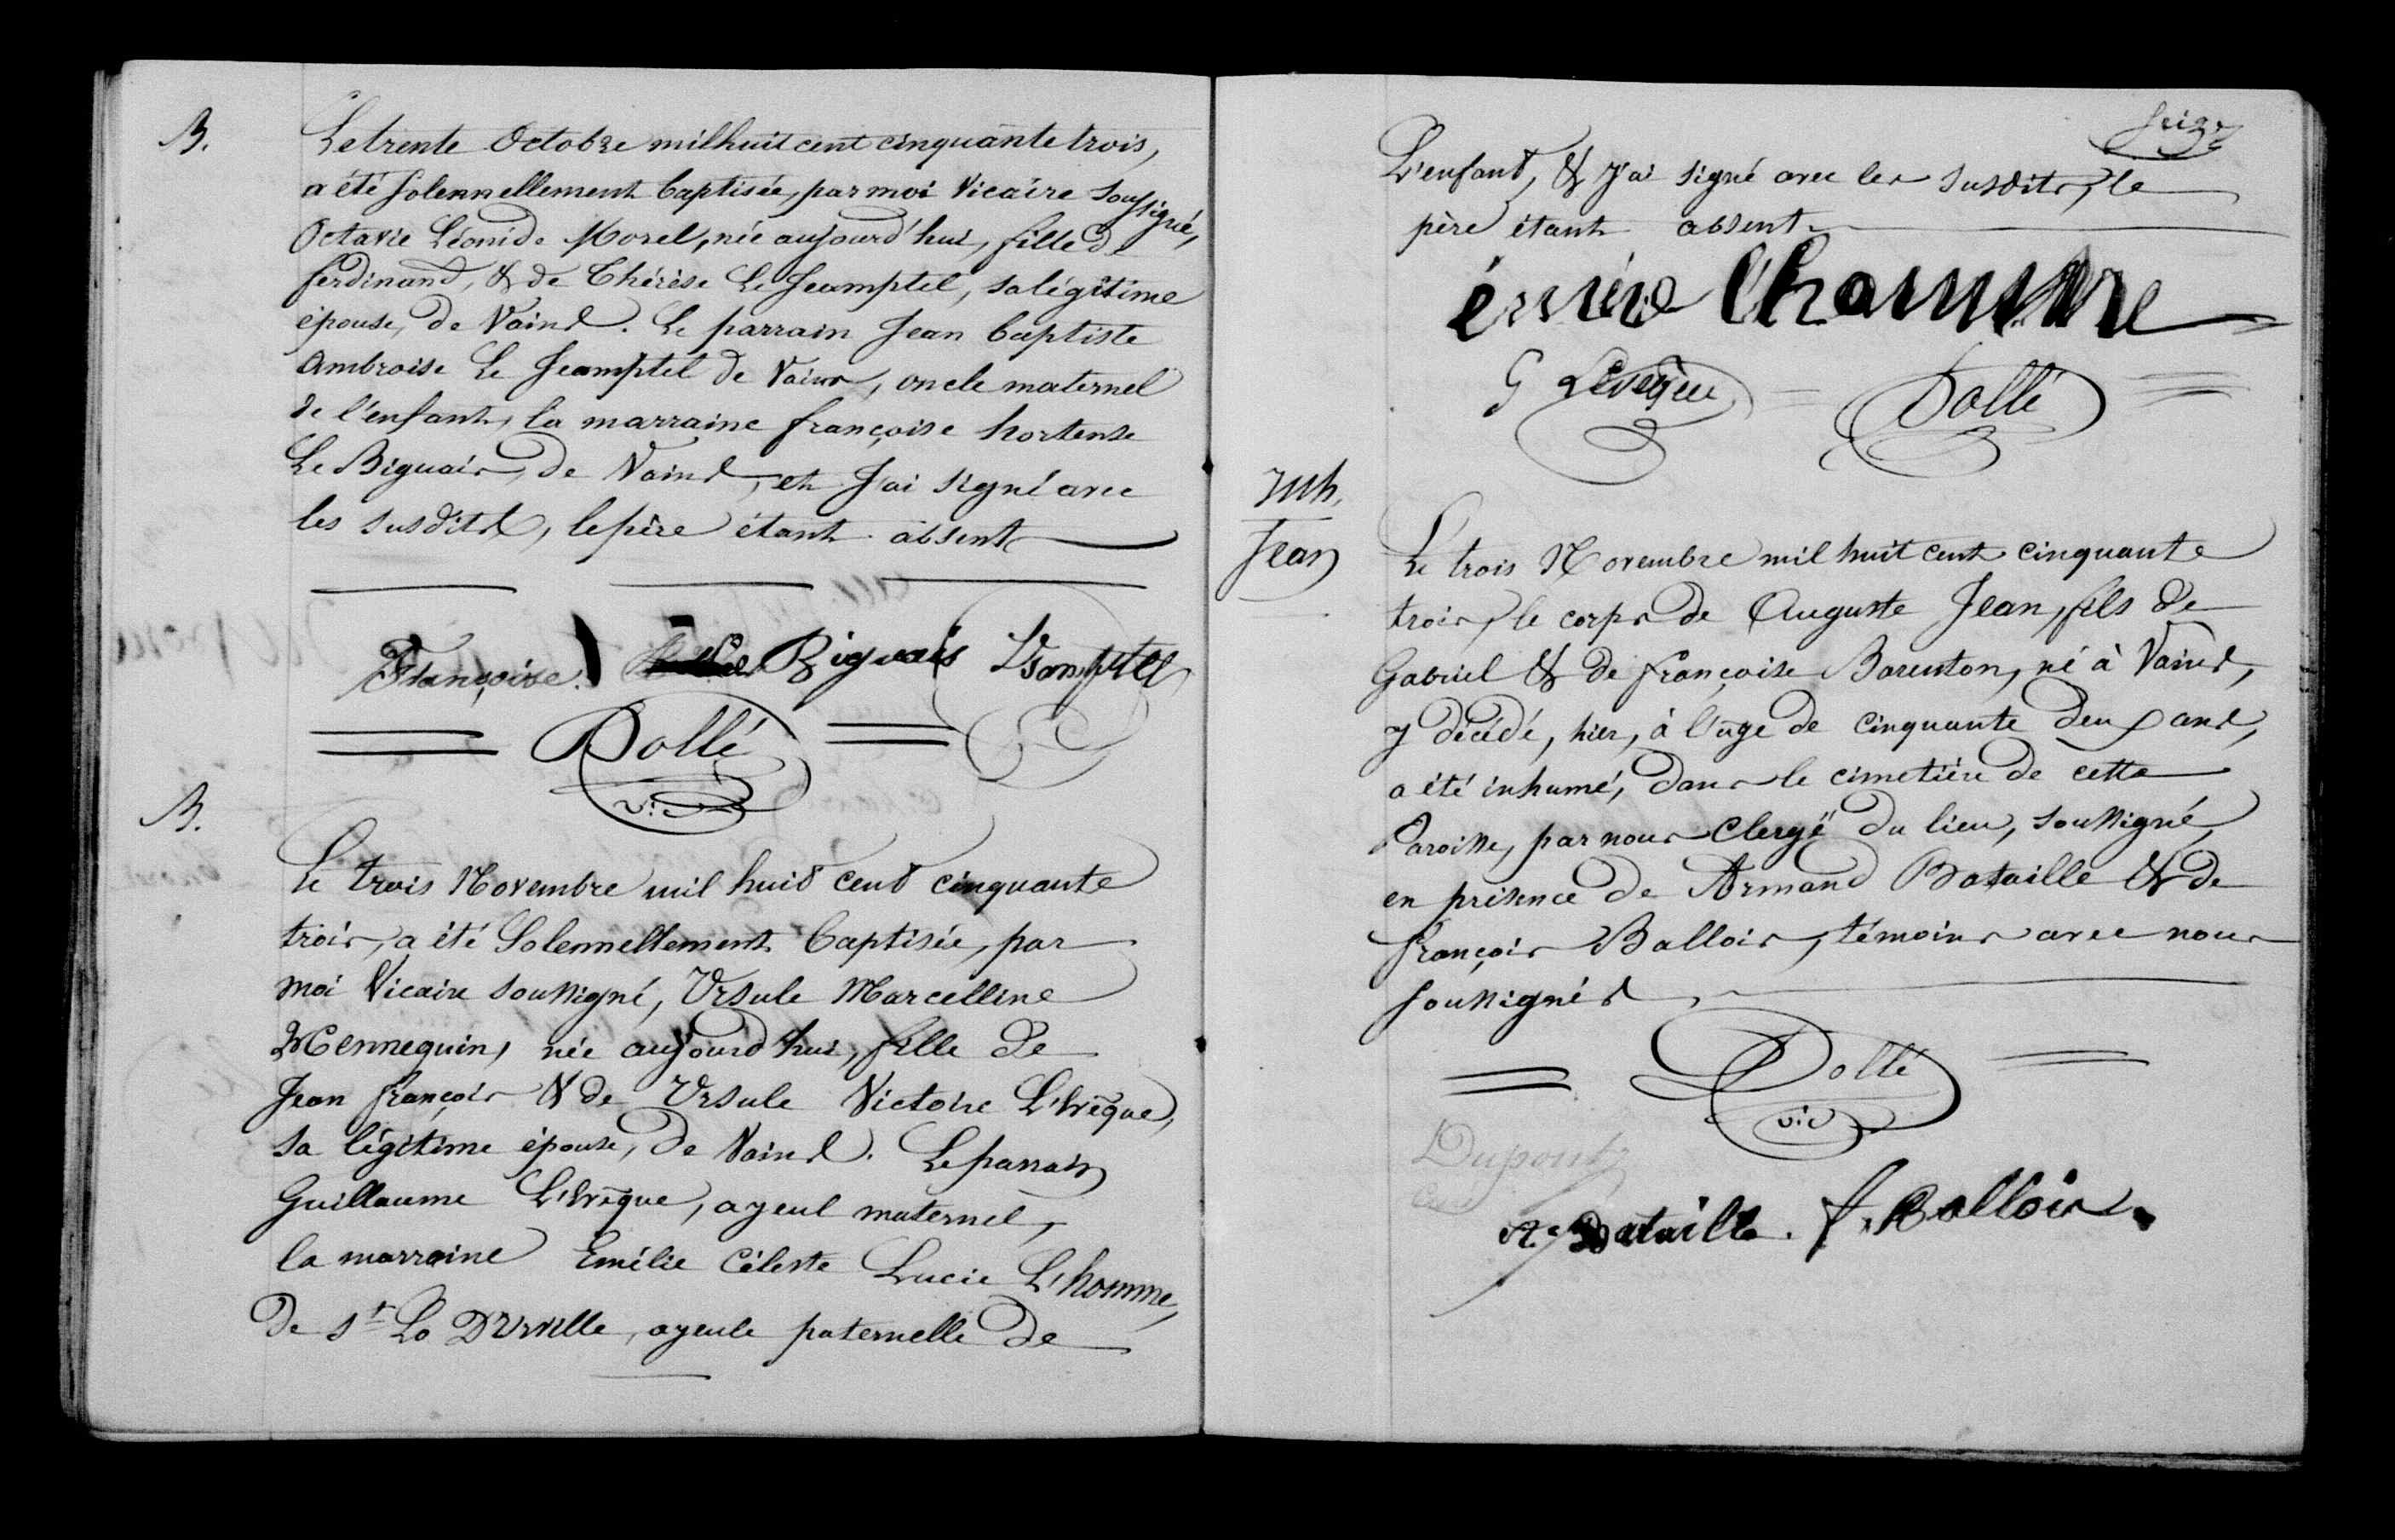 B.
Le trente Octobre mil huit cent cinquante trois,
a été Solennellement baptisée, par moi Vicaire Soussigné,
Octavie Léonide Morel, née aujourd'hui, fille de
ferdinand, & de Thérèse Le Jeamptel, sa légitime
épouse, de Vains. Le parrain Jean baptiste
Ambroise Le Jeamptel de Vains, oncle maternel
de l'enfant, la marraine françoise hortense
Le Biguais, de Vains, et J'ai signé avec
les susdits, le père étant absent
Françoise Le Biguais Lejamptel
Dollé
vic
B.
Le trois Novembre mil huit cent cinquante
trois, a été Solennellement baptisée, par
moi Vicaire soussigné, Ursule Marcelline
Hennequin, née aujourd'hui, fille de
Jean françois & de Ursule Victoire L'évêque,
sa légitime épouse, de Vains. Le parrain
Guillaume L'évêque, ayeul maternel,
la marraine Emélie Céleste Lucie L'homme,
de St Lo D'Urville, ayeule paternelle de
Seize
L'enfant, & J'ai signé avec les susdits, le
père étant absent
G Levêque Dollé
Inh.
Jean
Le trois Novembre mil huit cent cinquante
trois, le corps de Auguste Jean, fils de
Gabriel & de françoise Barenton, né à Vains,
y décédé, hier, à l'age de cinquante deux ans,
a été inhumé, dans le cimetière de cette
Paroisse, par nous Clergé du lieu, soussigné,
en présence de Armand Bataille & de
françois Ballois, témoins avec nous
soussignés
Dollé
vic
Dupont
curé
A. Bataille. f. Ballois.